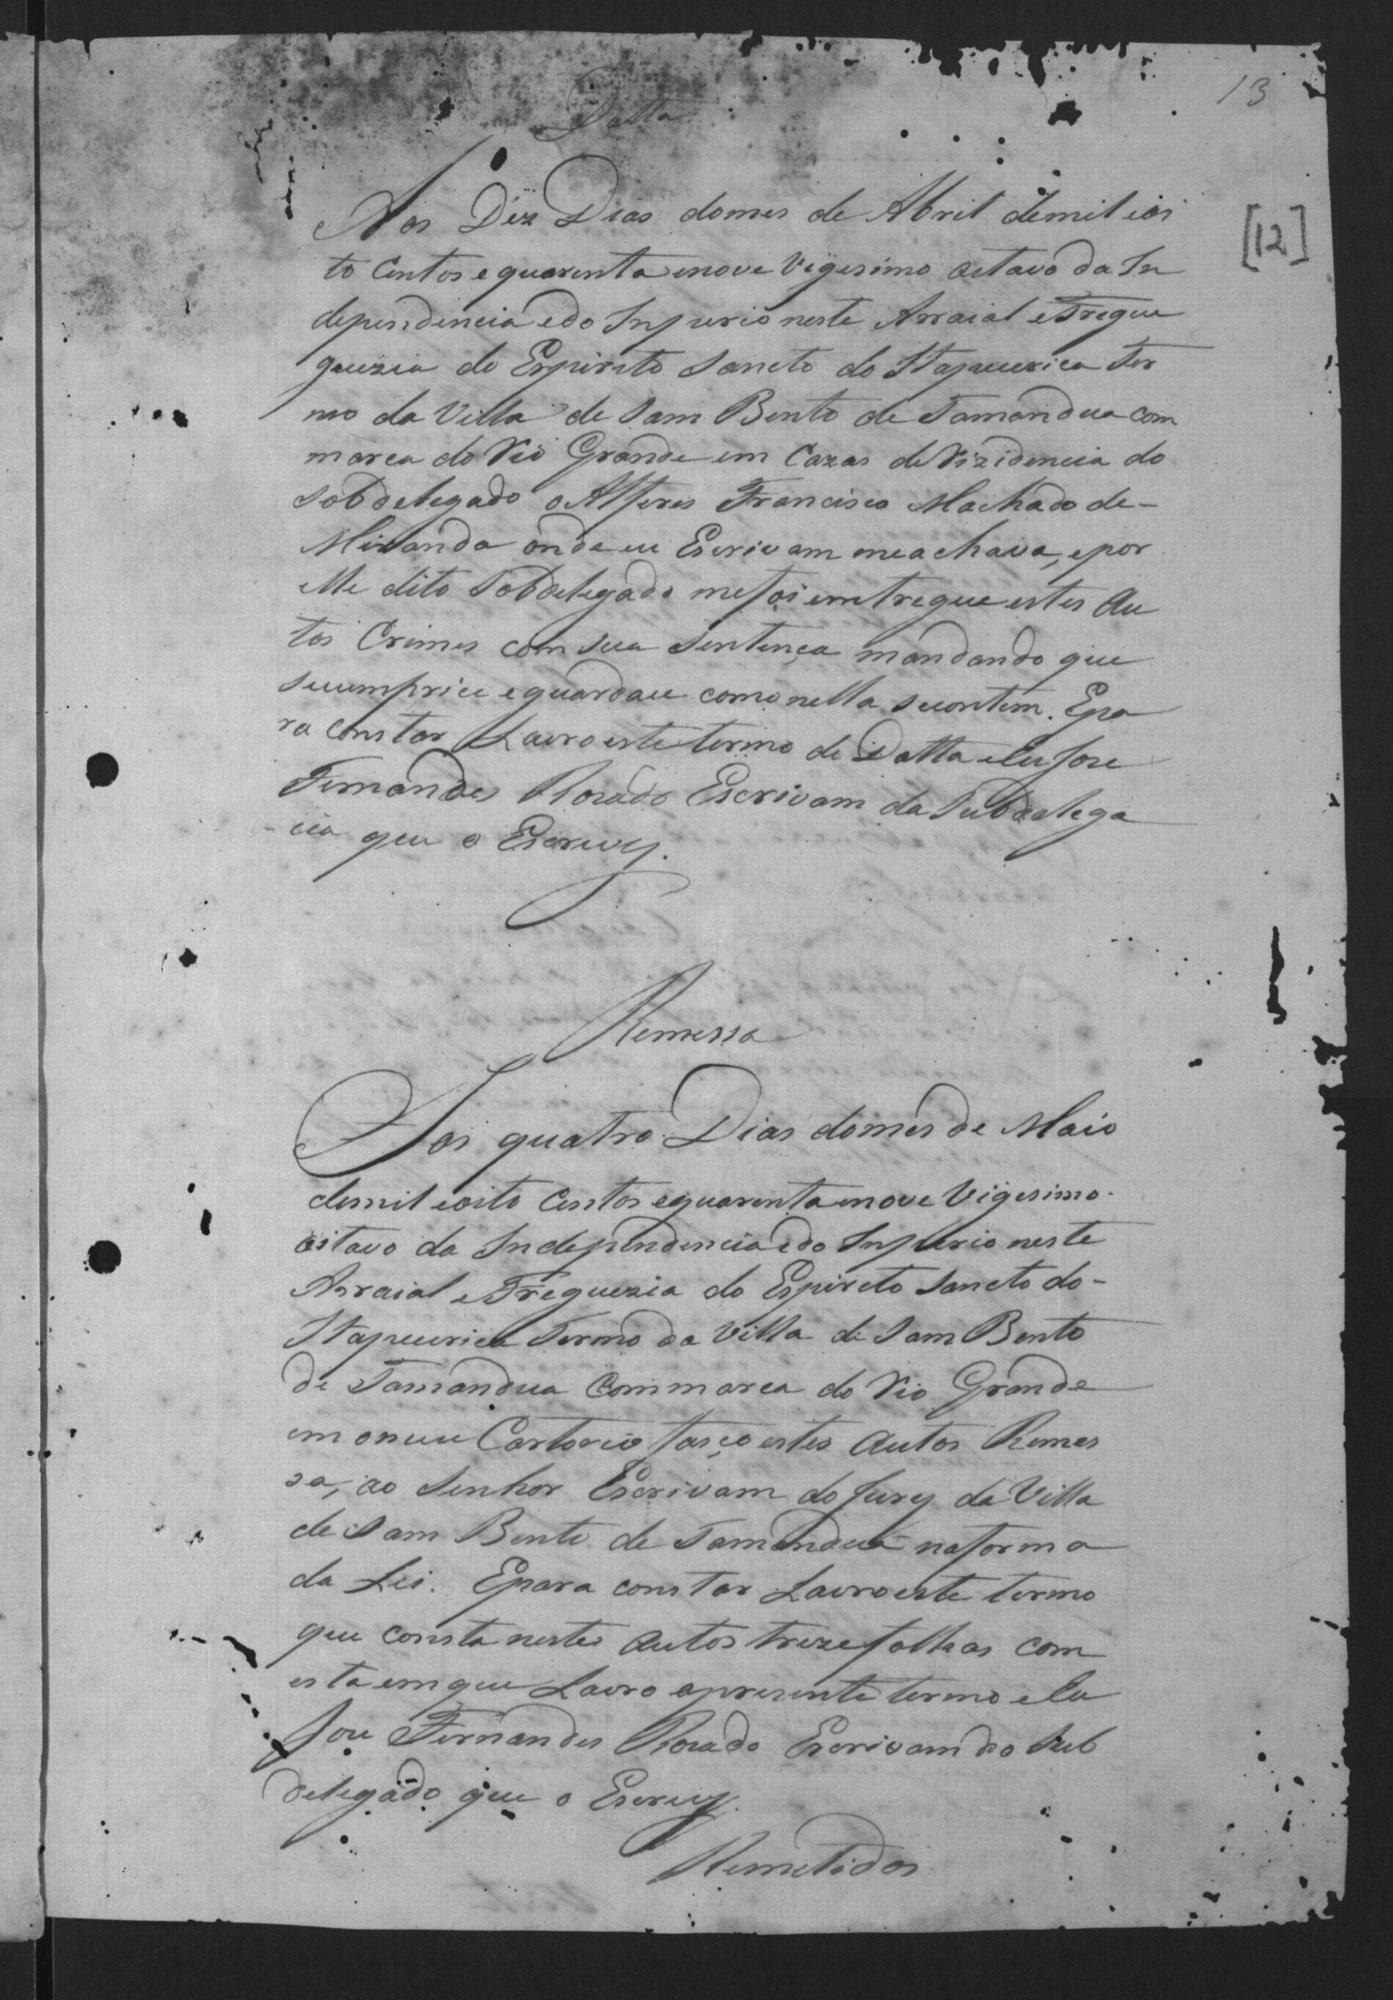 13
Datta
[12]
Aos Dez Dias domes de Abril demil eoi
to Centos equarenta enove Vigesimo oitavo da In
dependencia edo Inperio neste Arraial eFregue
guezia do Espirito Sancto do Itapeserica Ter
mo da Villa de Sam Bento de Tamandua Com
marca do Rio Grande em Cazas deRizidencia do
Sobdelegado oAlferes Francisco Machado de-
Miranda onde eu Escrivam meachava, epor
elle dito Sobdelegado mefoi emtregue estes Au
tos Crimes com sua sentença mandando que
secumprice eguardace comonella secontem. Epa
ra constar Lavro este termo de Datta eEu Joze
Fernandes Rozado Escrivam da Subdelega
cia que o Escrevy.
Remessa
Aos quatro Dias domes de Maio
demil eoito Centos equarenta enove Vigesimo
oitavo da Independencia edo Inperio neste
Arraial eFreguezia do Espirito Sancto do-
Itapeserica Termo da Villa de Sam Bento
de Tamandua Commarca do Rio Grande
em omeu Cartorio fasço estes Autos Remes
sa, ao Senhor Escrivam do Jury da Villa
de Sam Bento de Tamandua naforma
da Lei. Epara constar Lavro este termo
que consta nestes autos treze folhas com
esta emque Lavro apresente termo eEu
Joze Fernandes Rozado Escrivam do Sub
delegado que o Escrevy.
Remetidos